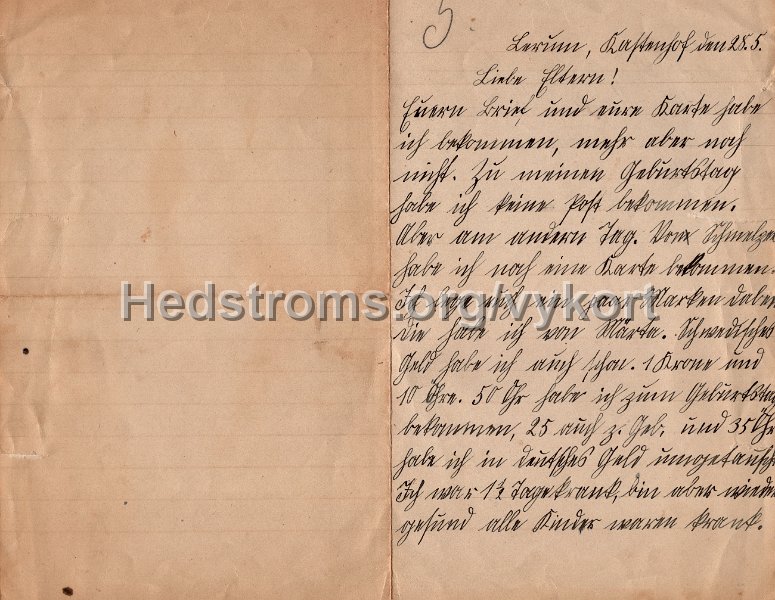 5.
Lerum, Kastenhof, den 28.5.
Liebe Eltern!
Euern Brief und eure Karte habe
ich bekommen, mehr aber noch
nicht. Zu meinen Geburtstag
habe ich keine Post bekommen.
Aber am andern Tag. Vom Schmelzer
habe ich noch eine Karte bekommen.
Ich lege mit ein paar Marken dabei
die habe ich von Märta. Schwedisches
Geld habe ich auch schon. 1 Krone und
10 Öhre. 50 Öhr habe ich zum Geburtstag
bekommen, 25 auch z. Geb. und 35 Öhr
habe ich in deutsches Geld umgetauscht
Ich war 1½ Tage krank, bin aber wieder
gesund alle Kinder waren krank.
Hedstroms.org/vykort